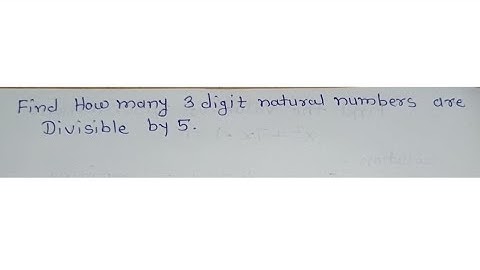 Find How many 3 digit natural numbers are
Divisible by 5.